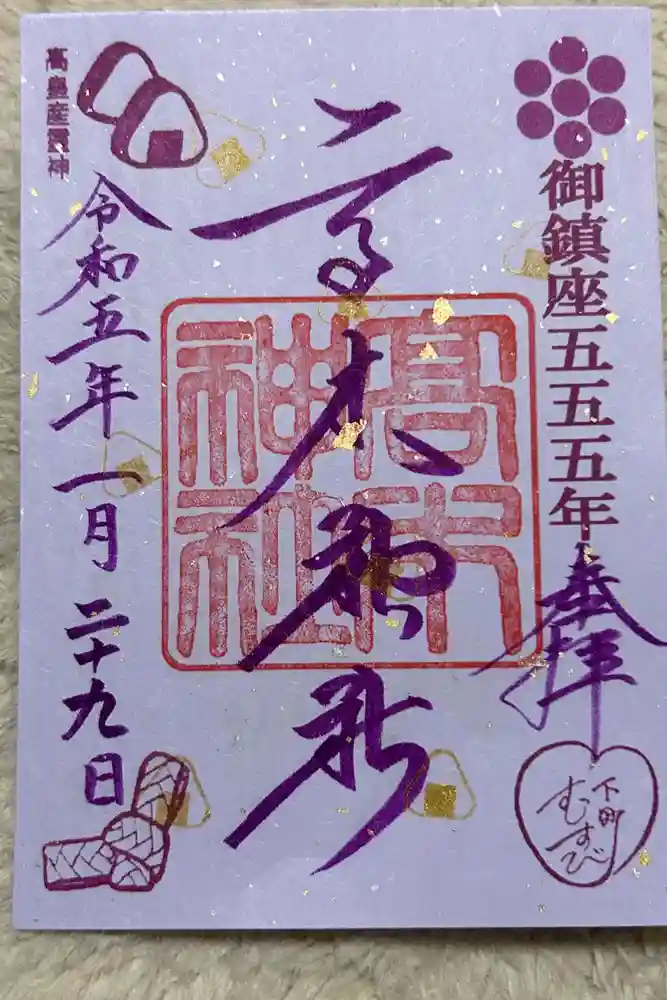 御鎮座五五五年
奉拝
下町
むすび
高木神社
高木神社
令和五年一月二十九日
高皇産霊神